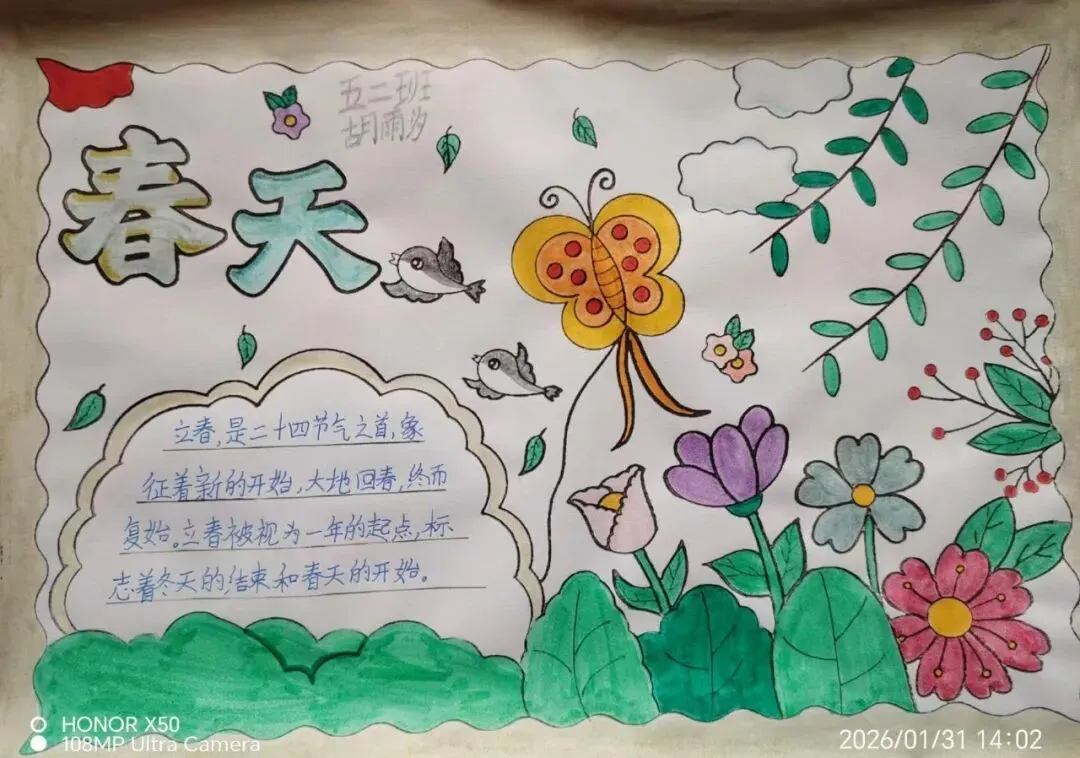 五二班
胡雨汐
春天
立春,是二十四节气之首,象
征着新的开始,大地回春,终而
复始。立春被视为一年的起点,标
志着冬天的结束和春天的开始。
HONOR X50
108MP Ultra Camera
2026/01/31 14:02